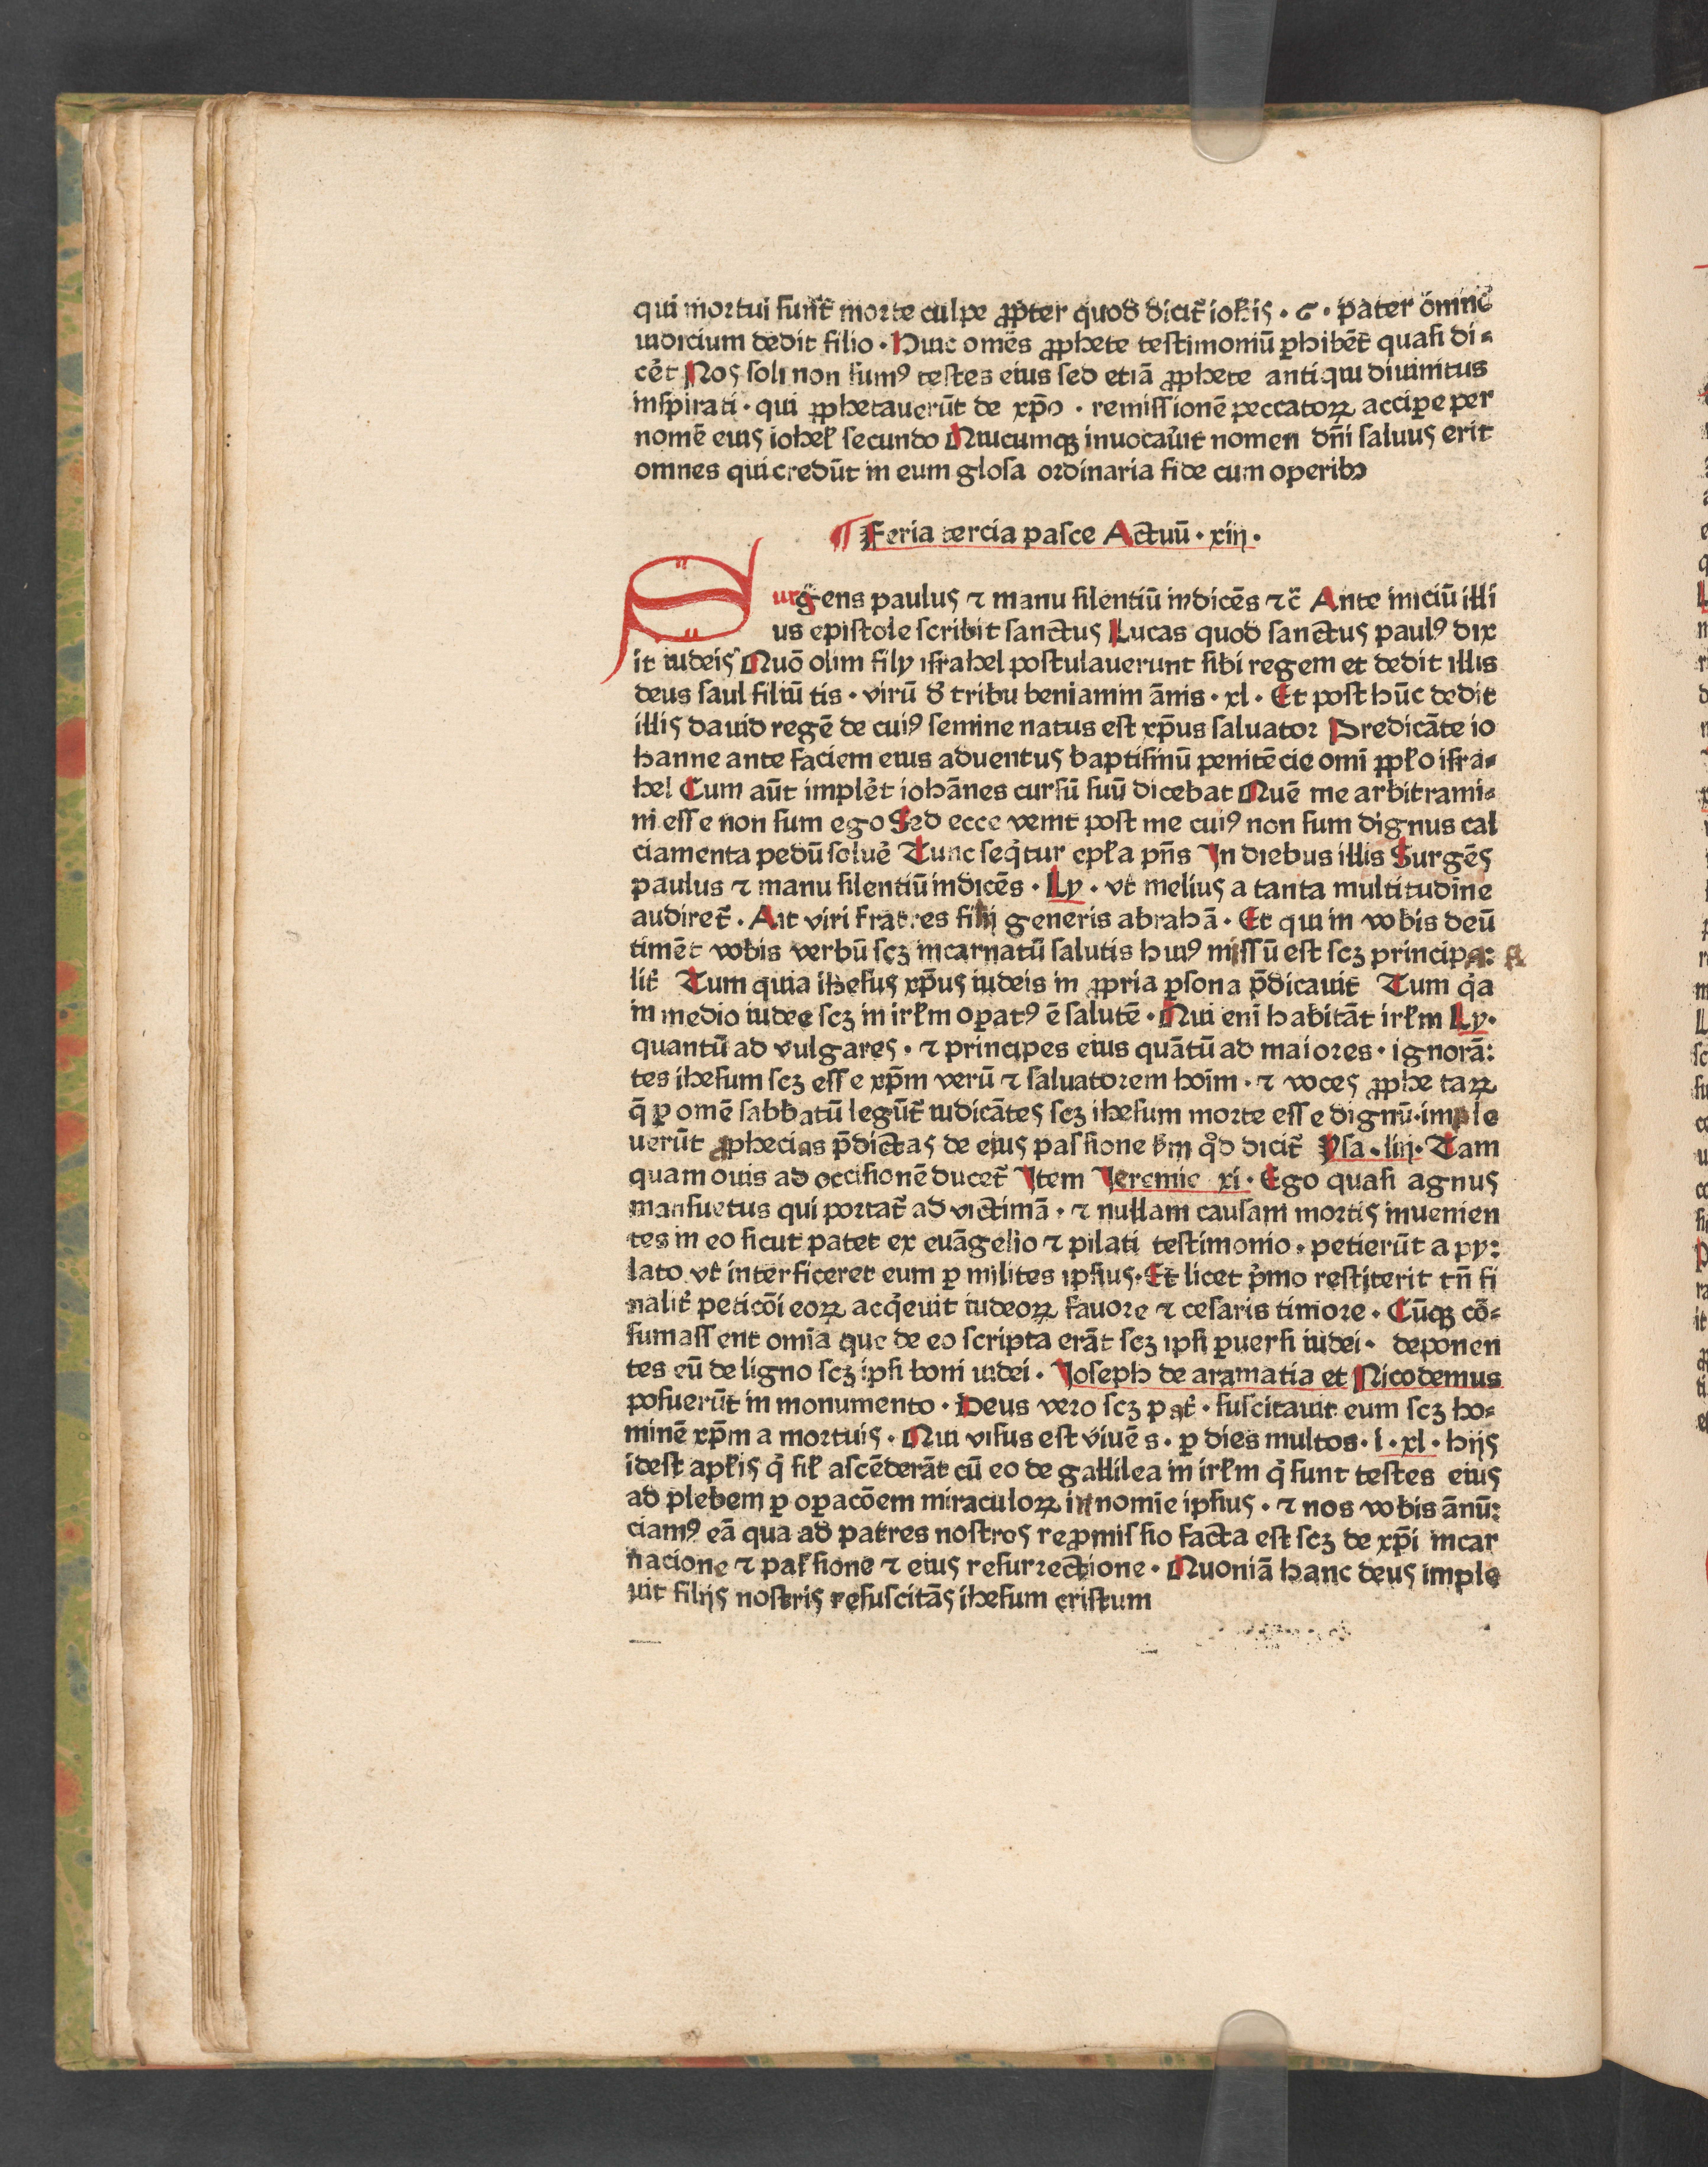 qui mortui sunt̃ morte culpe ꝓpter quod dicit̃ ioh̃is · 6 · pater õmne
iudicium dedit filio · Huic omẽs ꝓphete testimoniũ ꝑhibẽt quasi di⸗
cẽt Nos soli non sumꝰ testes eius sed etiã ꝓphete antiqui diuinitus
inspirati · qui ꝓphetauerũt de xp̃o · remissionẽ peccatoꝝ accipe per
nomẽ eius iohel̃ secundo Quicumqꝫ inuocau̾it nomen dñi saluus erit
omnes qui credũt in eum glosa ordinaria fide cum operibꝫ
¶ Feria tercia pasce Actuũ · xiij ·
Surgens paulus ⁊ manu silentiũ indicẽs ⁊c̃ Ante iniciũ illi
us epistole scribit sanctus Lucas quod sanctus paulꝰ dix
it iudeis Quõ olim filÿ israhel postulauerunt sibi regem et dedit illis
deus saul filiũ tis · virũ d̾ tribu beniamin ãnis · xl · Et post hũc dedit
illis dauid regẽ de cuiꝰ semine natus est xp̃us saluator Predicãte io
hanne ante faciem eius aduentus baptismũ penitẽcie omĩ ppl̃o isra⸗
hel Cum aũt implẽt iohãnes cursũ suũ dicebat Quẽ me arbitrami⸗
ni esse non sum ego Sed ecce venit post me cuiꝰ non sum dignus cal
ciamenta pedũ solue̾ Tunc seq̾tur epl̃a pñs In diebus illis Surgẽs
paulus ⁊ manu silentiũ indicẽs · Ly · vt melius a tanta multitudine
audiret̃ · Ait viri fratres filij generis abrahã · Et qui in vobis deũ
timẽt vobis verbũ scꝫ incarnatũ salutis huiꝰ missũ est scꝫ principa:
lit̾ Tum quia ihesus xp̃us iudeis in ꝓpria ꝑsona p̃dicauit Tum q̾a
in medio iudee scꝫ in irl̃m oꝑatꝰ ẽ salutẽ · Qui eni habitãt irl̃m Ly·
quantũ ad vulgares · ⁊ principes eius quãtũ ad maiores · ignorã:
tes ihesum scꝫ esse xp̃m verũ ⁊ saluatorem hoim · ⁊ voces ꝓphetaꝝ
q̃ ꝑ omẽ sabbatũ legũt̃ iudicãtes scꝫ ihesum morte esse dignũ · imple
uerũt ꝓphecias p̃dictas de eius passione s̾m q̊d dicit̃ Ysa · liij · Tam
quam ouis ad occisionẽ ducet̃ Item Jeremie xi · Ego quasi agnus
mansuetus qui portat̃ ad victimã · ⁊ nullam causam mortis inuenien
tes in eo sicut patet ex euãgelio ⁊ pilati testimonio · petierũt a py:
lato vt interficeret eum ꝑ milites ipsius · Et licet p̾mo restiterit tñ fi
nalit̾ peticõi eoꝝ acq̾euit iudeoꝝ fauore ⁊ cesaris timore · Cũqꝫ cõ⸗
sumassent omia que de eo scripta erãt scꝫ ipsi ꝑuersi iudei · deponen
tes eũ de ligno scꝫ ipsi boni iudei · Joseph de aramatia et Nicodemus
posuerũt in monumento · Deus vero scꝫ pat̾ · suscitauit eum scꝫ ho⸗
minẽ xp̃m a mortuis · Qui visus est viuẽs · ꝑ dies multos · i · xl · hijs
idest apl̃is q̾ sil̃ ascẽderãt cũ eo de gallilea in irl̃m q̾ sunt testes eius
ad plebem ꝑ oꝑacõem miraculoꝝ in nomie ipsius · ⁊ nos vobis ãnũ:
ciamꝰ eã qua ad patres nostros reꝓmissio facta est scꝫ de xp̃i incar
nacione ⁊ passione ⁊ eius resurrectione · Quoniã hanc deus imple
uit filijs nostris resuscitãs ihesum cristum